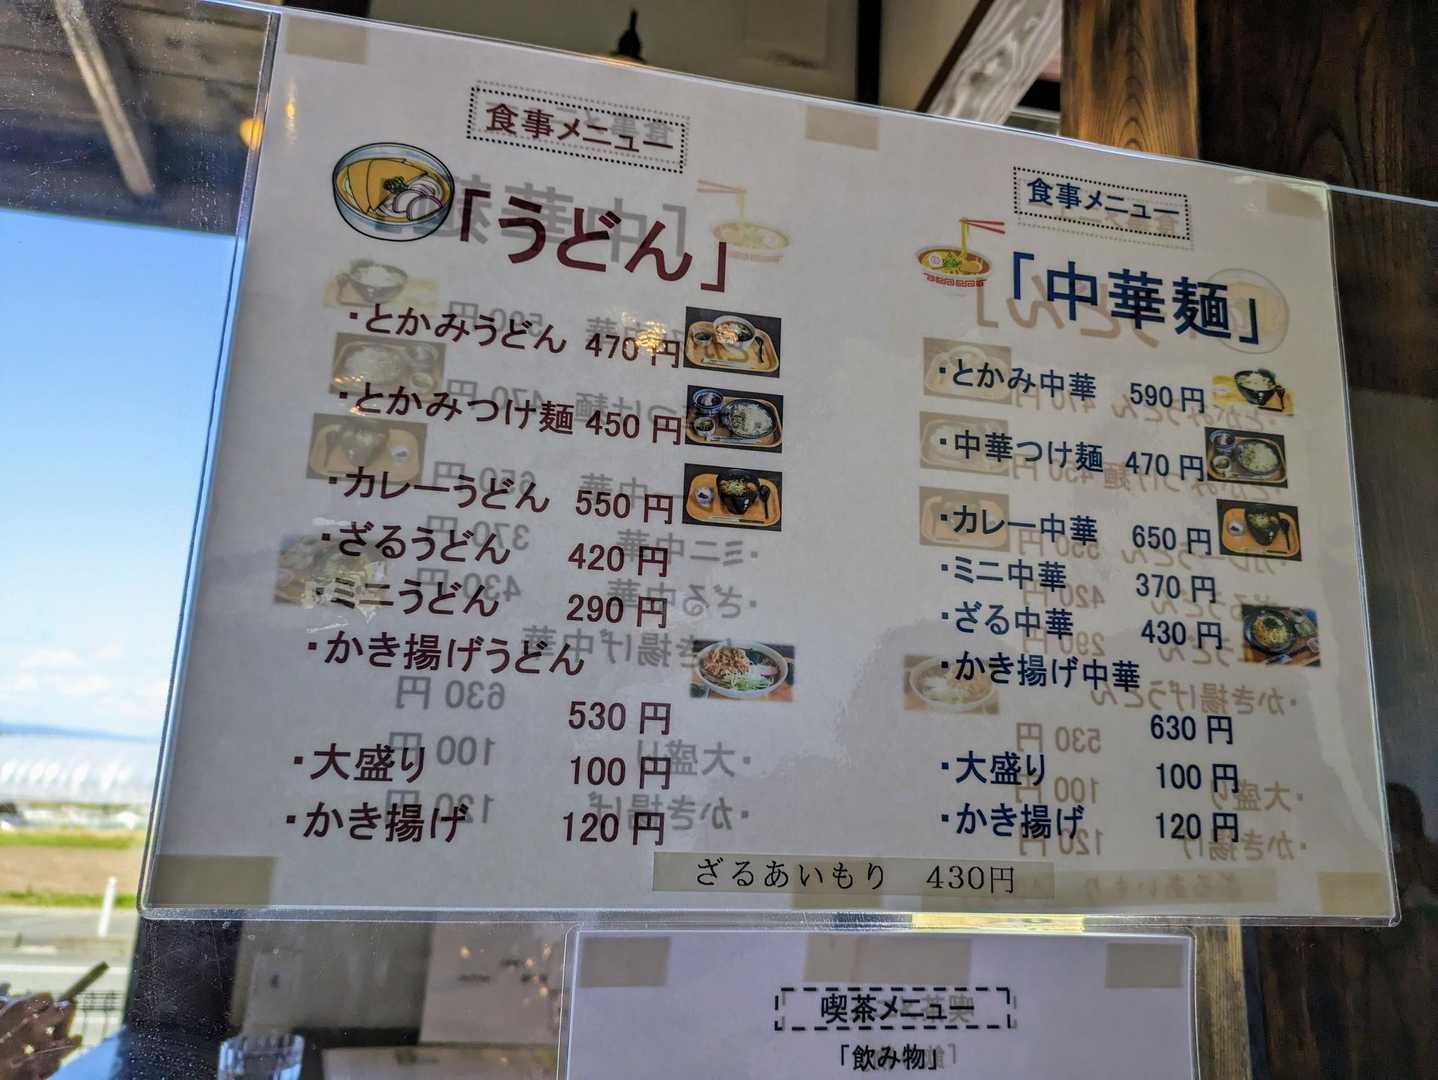 食事メニュー
「うどん」
・とかみうどん 470円
・とかみつけ麺 450円
・カレーうどん 550円
・ざるうどん 420円
・ミニうどん 290円
・かき揚げうどん
530円
・大盛り 100円
・かき揚げ 120円
食事メニュー
「中華麺」
・とかみ中華 590円
・中華つけ麺 470円
・カレー中華 650円
・ミニ中華 370円
・ざる中華 430円
・かき揚げ中華
630円
・大盛り 100円
・かき揚げ 120円
ざるあいもり 430円
喫茶メニュー
「飲み物」